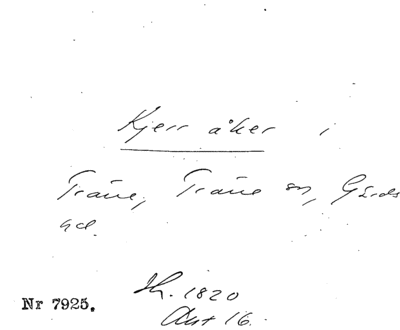 Kjerr åker i
Träne, Träne sn, Gärds
hd.
Sk. 1820
Akt 16.
Nr 7925.